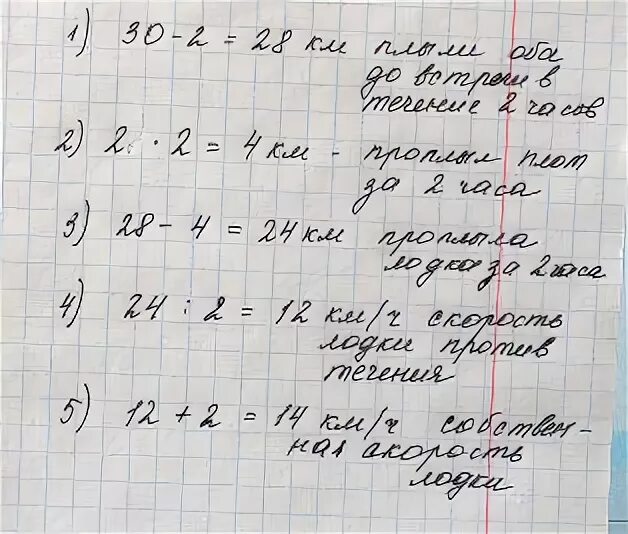 1) 30 - 2 = 28 км плыли оба
до встречи в
течение 2 часов
2) 2 · 2 = 4 км - проплыл плот
за 2 часа
3) 28 - 4 = 24 км проплыла
лодка за 2 часа
4) 24 : 2 = 12 км/ч скорость
лодки против
течения
5) 12 + 2 = 14 км/ч собствен-
ная скорость
лодки